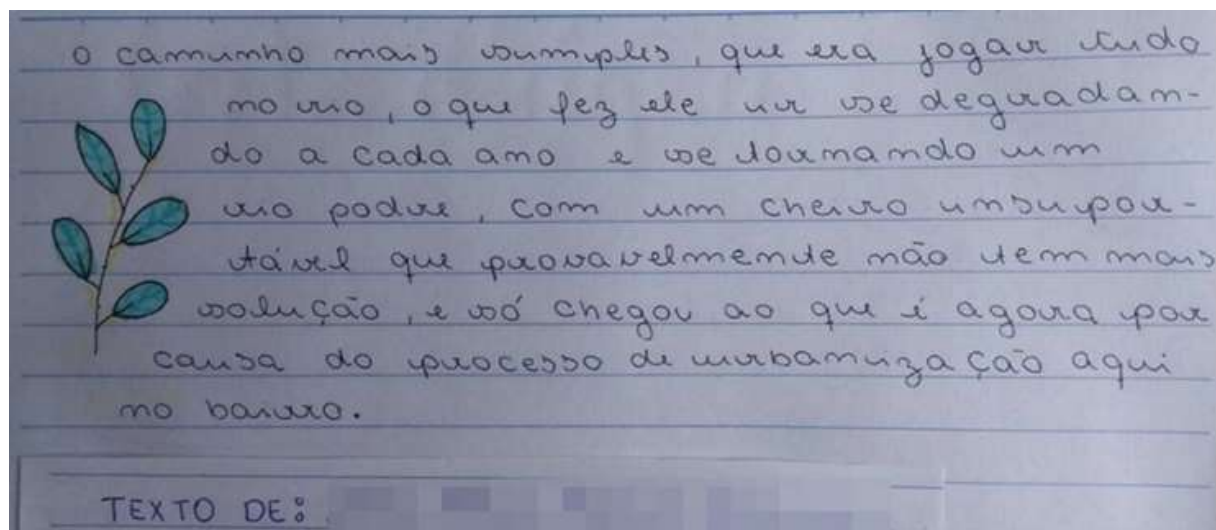 o caminho mais simples, que era jogar tudo
no rio, o que fez ele ir se degradan-
do a cada ano e se tornando um
rio podre, com um cheiro insupor-
tável que provavelmente não tem mais
solução, e só chegou ao que é agora por
causa do processo de urbanização aqui
no bairro.
TEXTO DE: